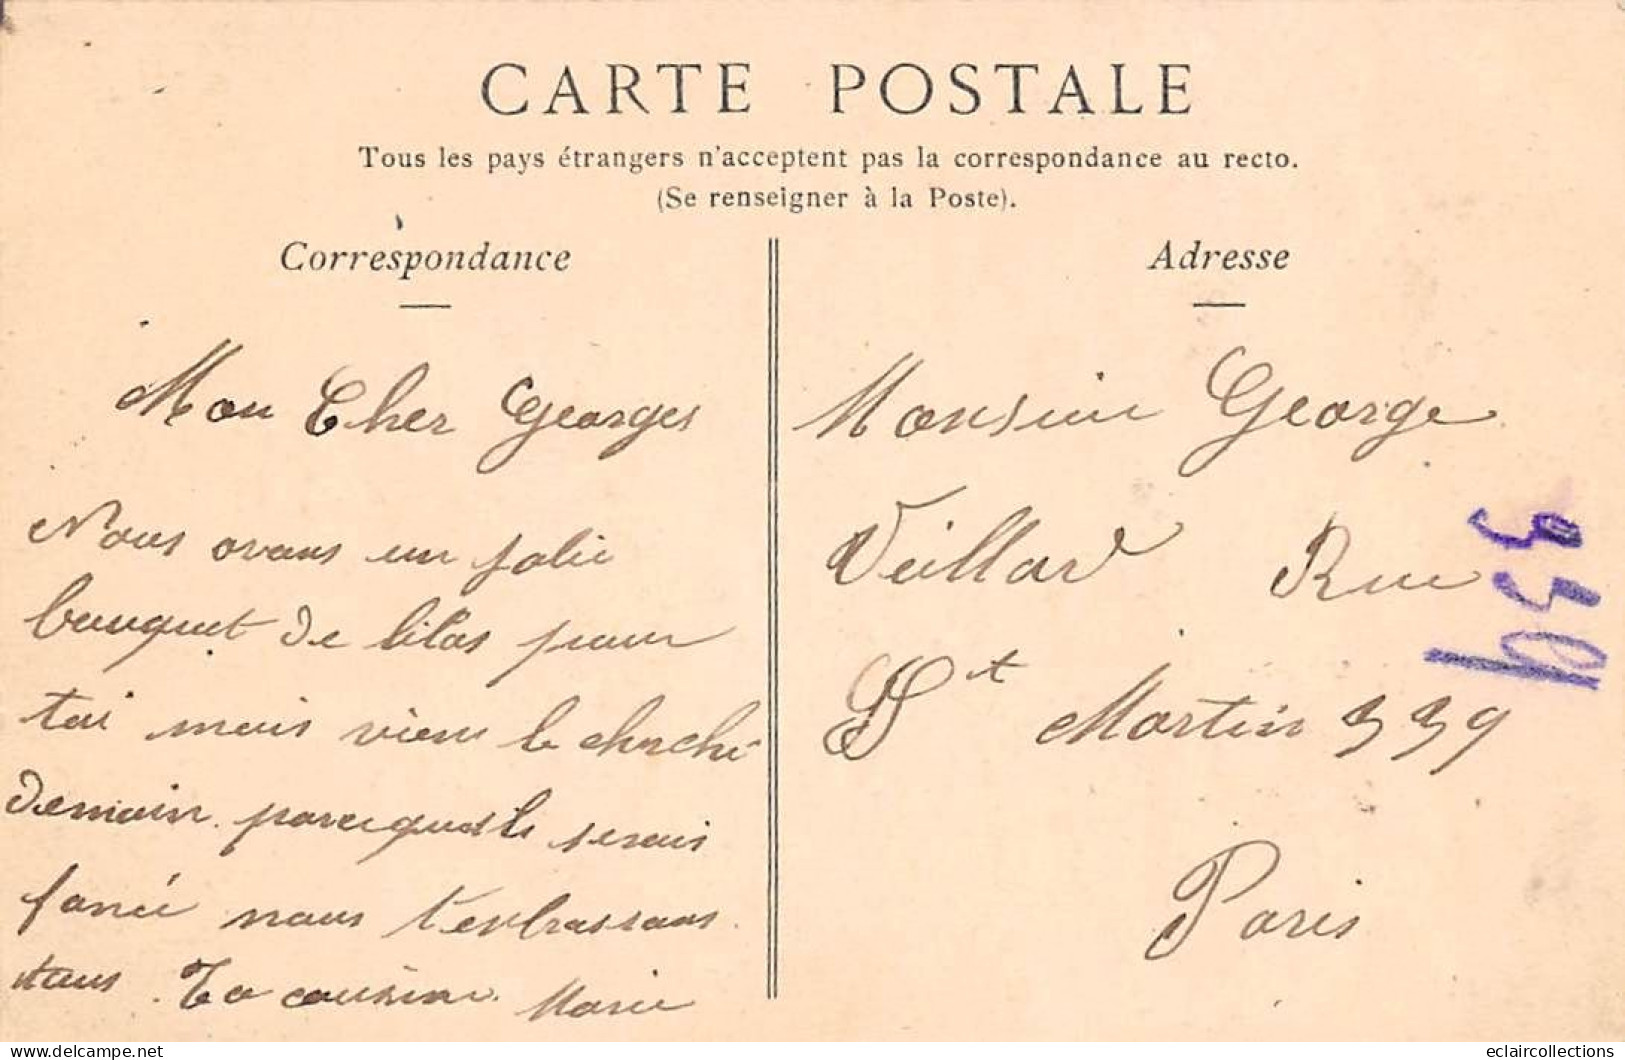 CARTE POSTALE
Tous les pays étrangers n'acceptent pas la correspondance au recto.
(Se renseigner à la Poste).
Correspondance
Mon Cher Georges
Nous avons un jolie
bouquet de lilas pour
toi mais viens le cherché
demain parceque ils serais
fanée nous t'enbrassons
tous. Ta cousine Marie
Adresse
Monsieur George
Veillard Rue
St Martin 339
Paris
delcampe.net
eclaircollections